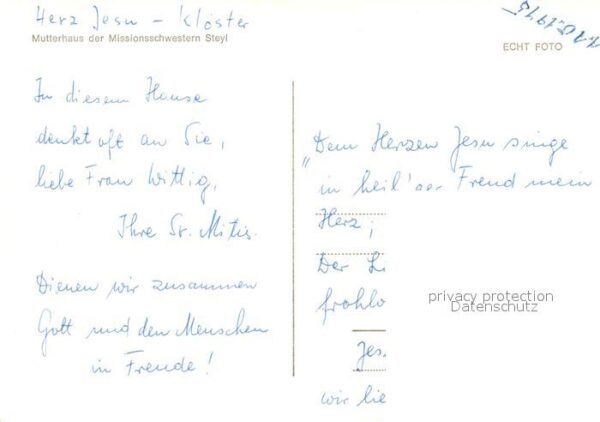 Herz Jesu - Klöster
Mutterhaus der Missionsschwestern Steyl
1.10.1975
ECHT FOTO
In diesem Hause
denkt oft an Sie,
liebe Frau Wittig,
Ihre Sr. Mitis.
Dienen wir zusammen
Gott und den Menschen
in Freude!
"Dem Herzen Jesu singe
in heil'ger Freud mein
Herz;
Der
frohlo
Jes.
wir lie
privacy protection
Datenschutz